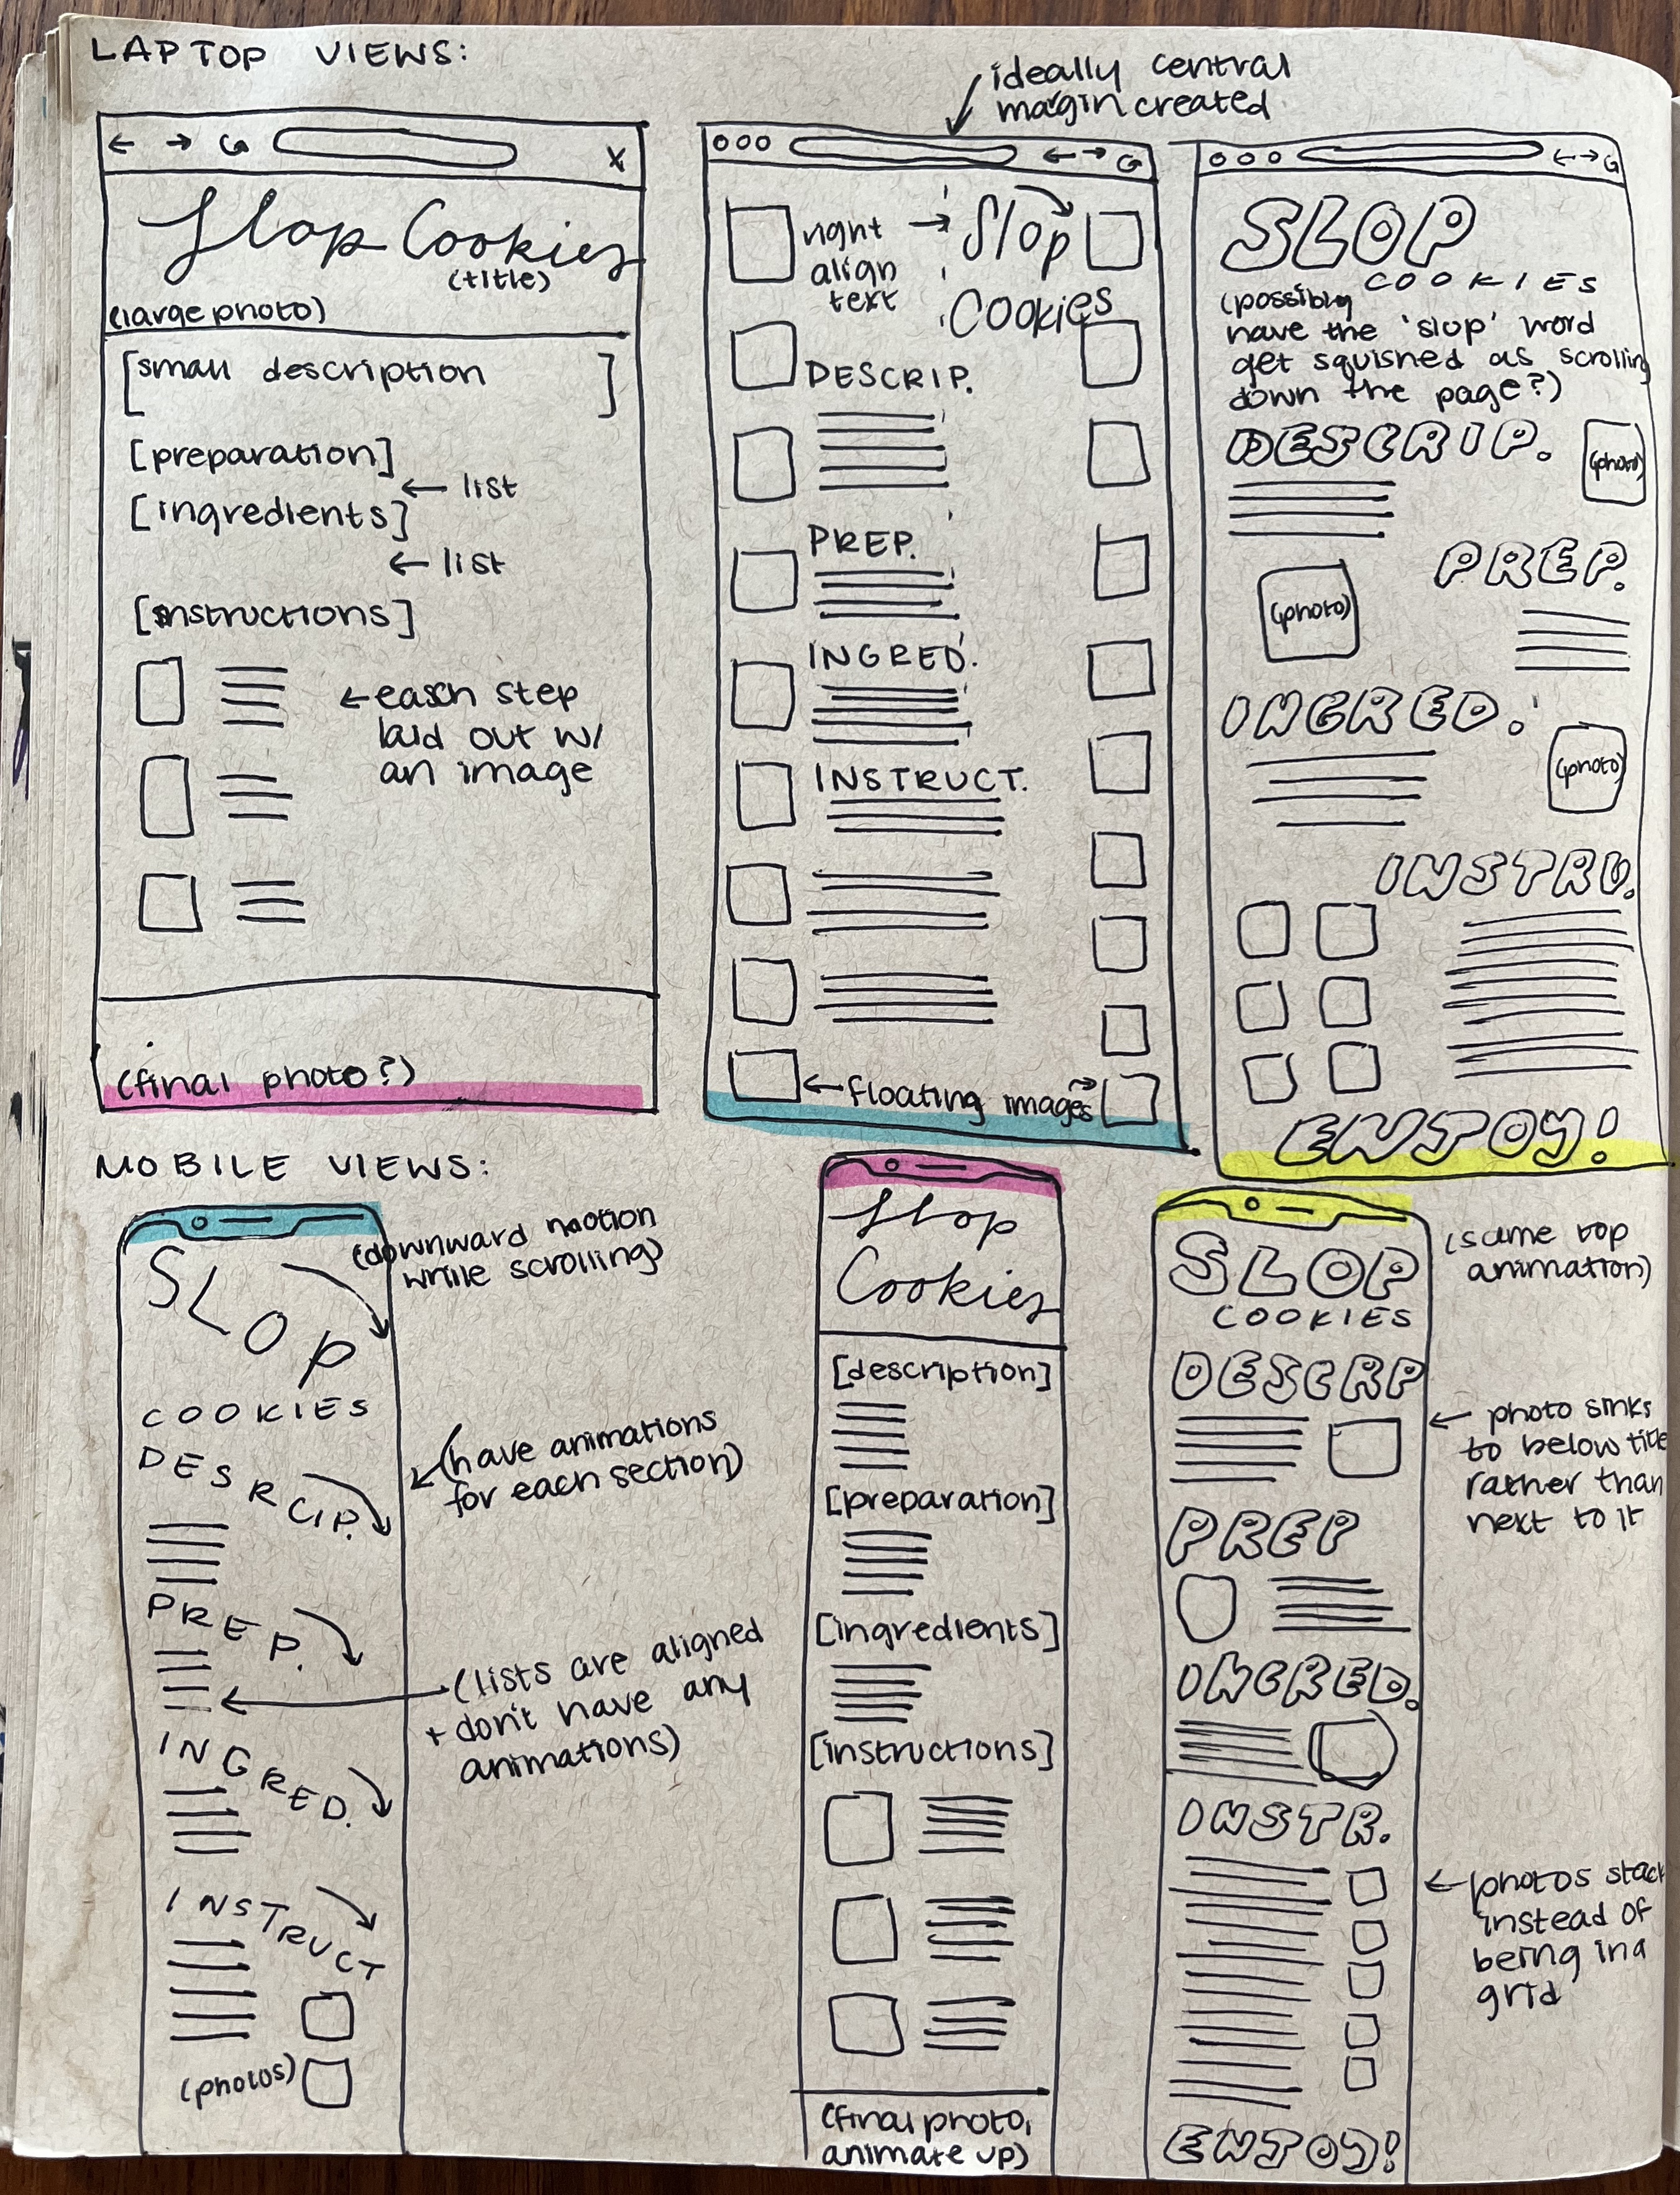 LAPTOP VIEWS:
ideally central
margin created
Slop Cookies
(title)
(large photo)
[small description]
[preparation]
← list
[ingredients]
← list
[instructions]
← each step
laid out w/
an image
(final photo?)
right →
align
text
Slop
Cookies
DESCRIP.
PREP.
INGRED.
INSTRUCT.
← floating images →
SLOP
COOKIES
(possibly
have the 'slop' word
get squished as scrolling
down the page?)
DESCRIP.
(photo)
PREP.
(photo)
INGRED.
(photo)
INSTRU.
ENJOY!
MOBILE VIEWS:
SLOP
(downward motion
while scrolling)
COOKIES
DESRCIP.
(have animations
for each section)
PREP.
(lists are aligned
+ don't have any
animations)
INGRED.
INSTRUCT
(photos)
Slop
Cookies
[description]
[preparation]
[ingredients]
[instructions]
(final photo,
animate up)
SLOP
COOKIES
(same top
animation)
DESCRP
← photo sinks
to below title
rather than
next to it
PREP
INGRED.
INSTR.
← photos stack
instead of
being in a
grid
ENJOY!